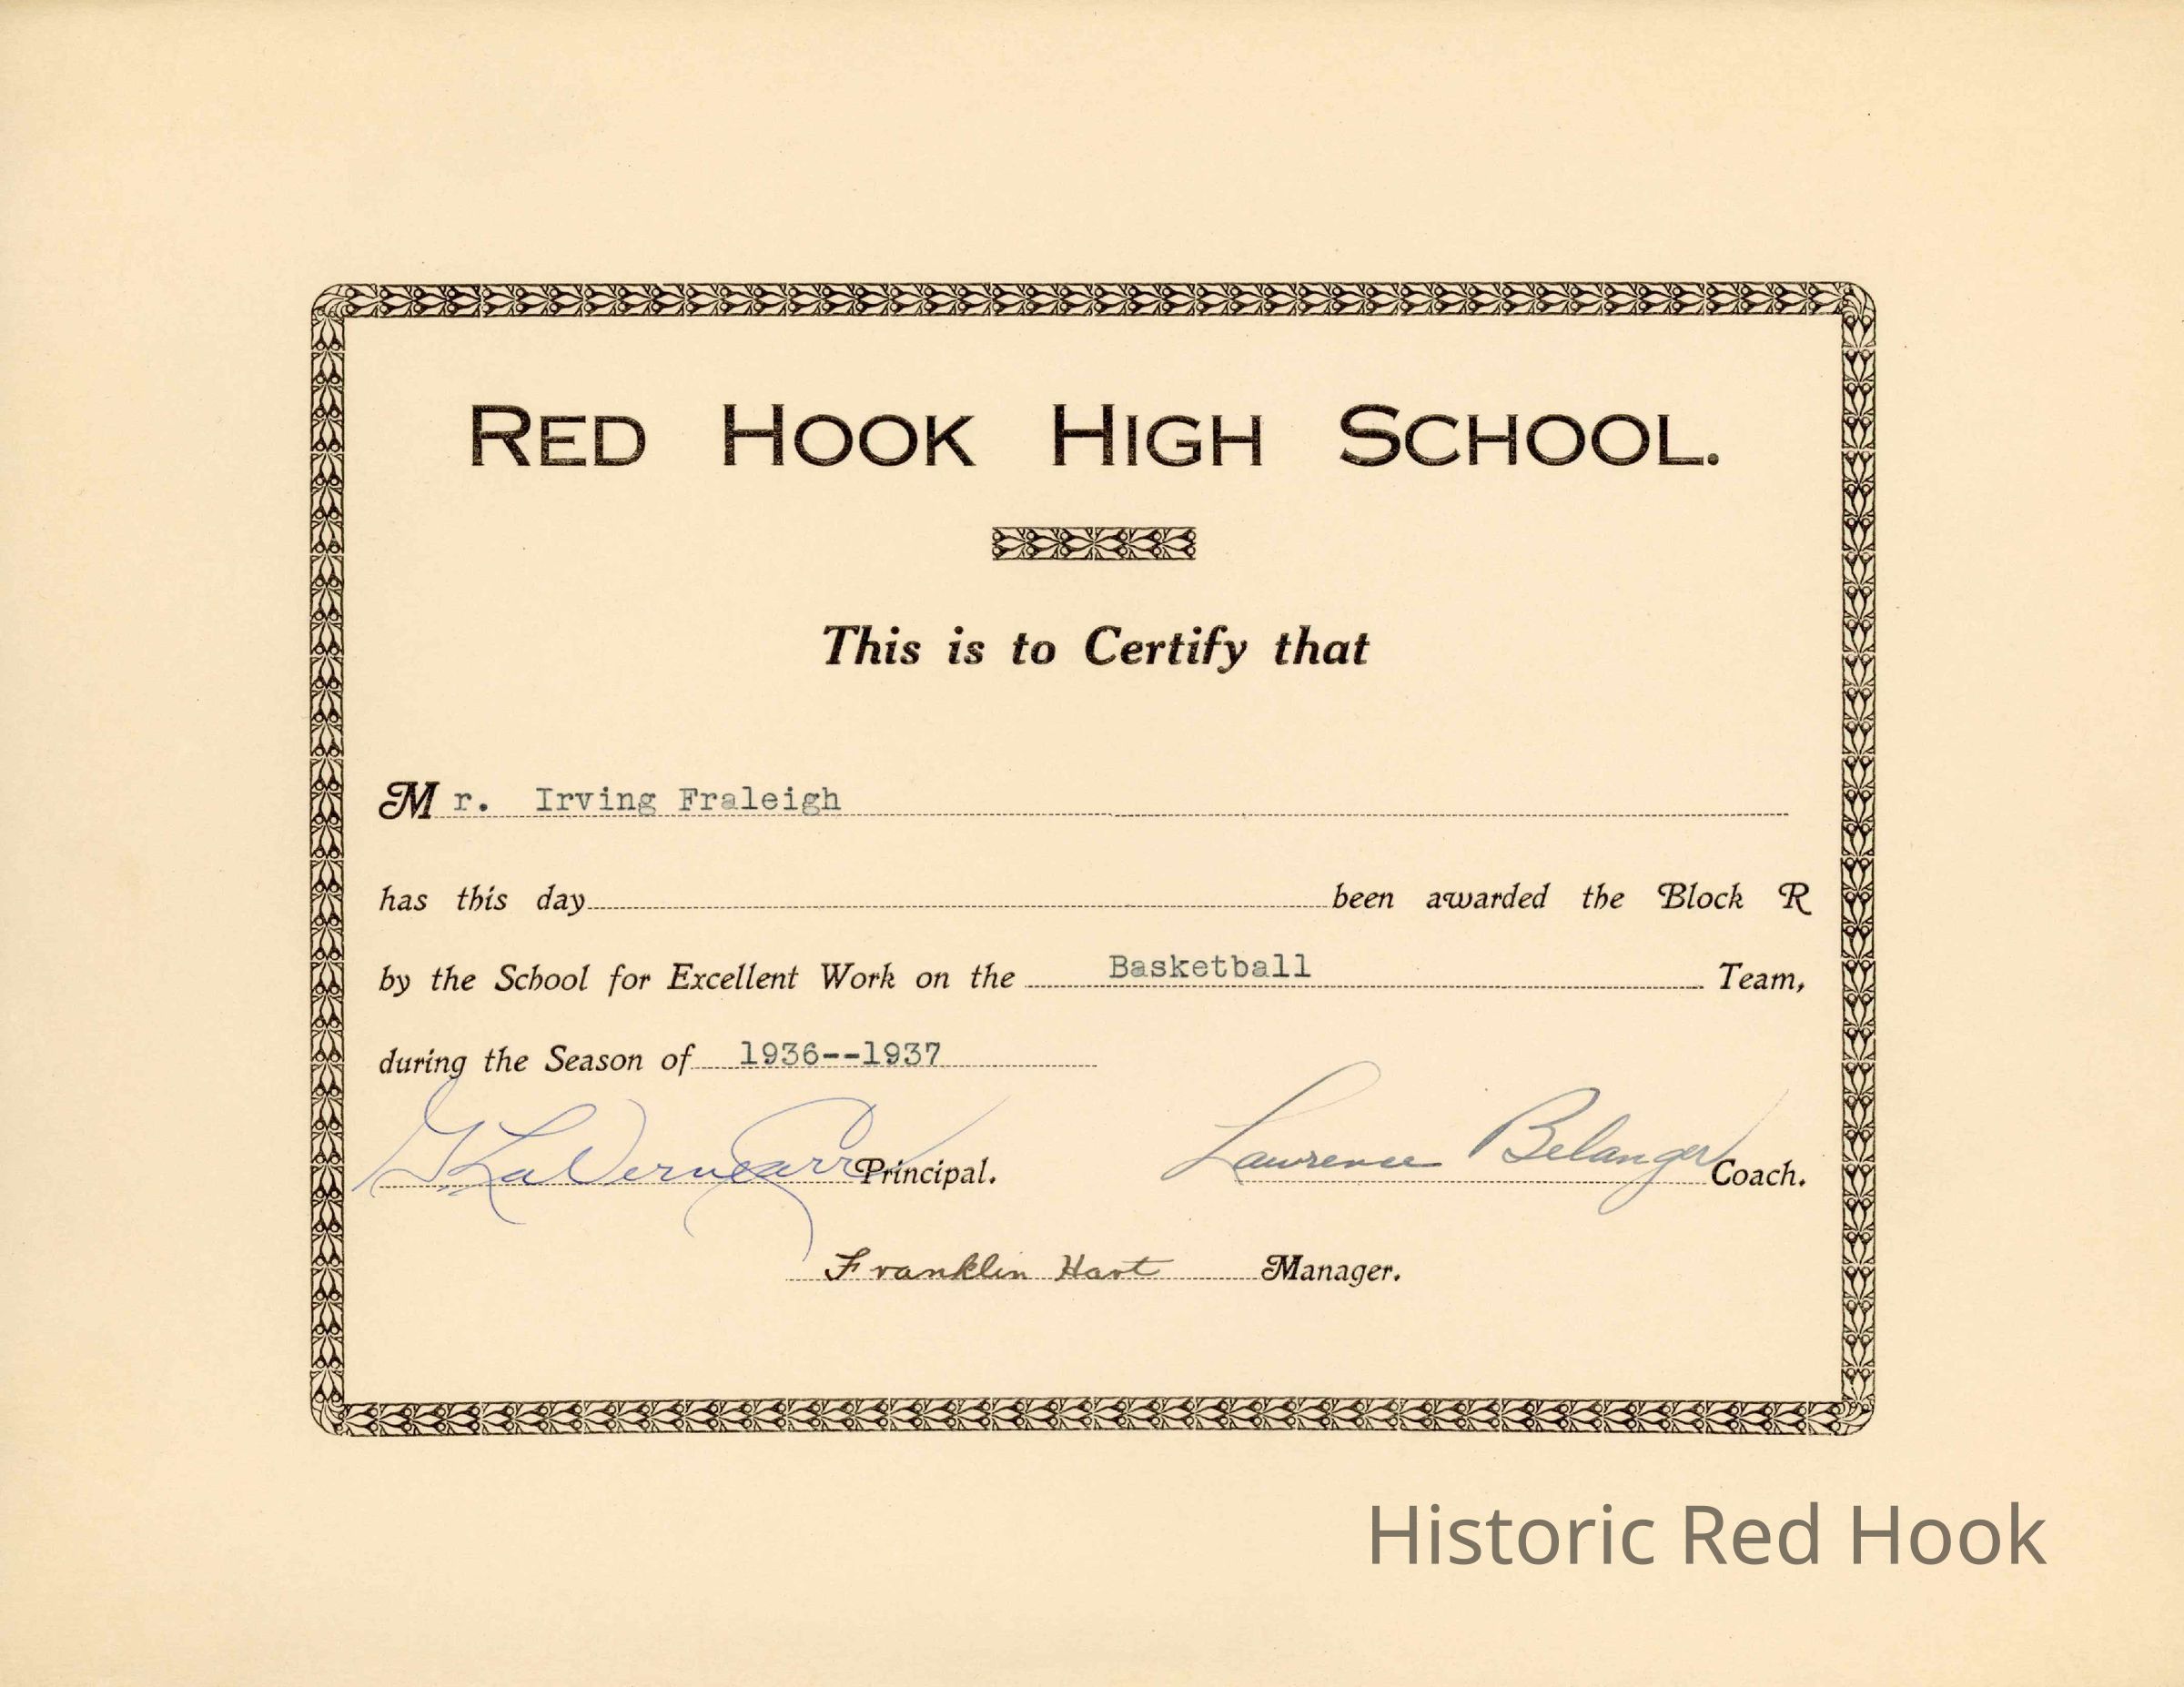 RED HOOK HIGH SCHOOL.
This is to Certify that
Mr. Irving Fraleigh
has this day been awarded the Block R
by the School for Excellent Work on the Basketball Team,
during the Season of 1936--1937
G LaVerne Carr Principal. Lawrence Belanger Coach.
Franklin Hart Manager.
Historic Red Hook